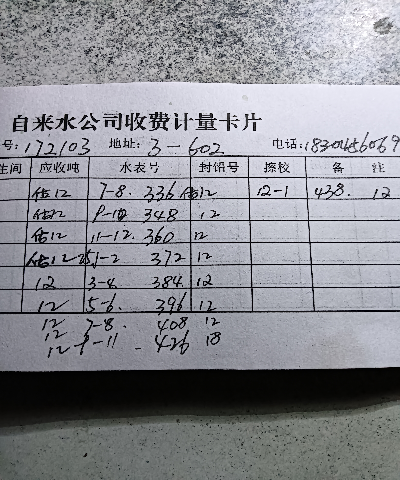 自来水公司收费计量卡片
号:172103 地址:3-602 电话:1830456069
生间 应收吨 水表号 封铅号 擦校 备 注
估12 7-8. 336 估12 12-1 438. 12
估12 9-10 348 12
估12 11-12. 360 12
估12 1-2 372 12
12 3-4 384 12
12 5-6. 396 12
12 7-8. 408 12
12
12 9-11 426 18